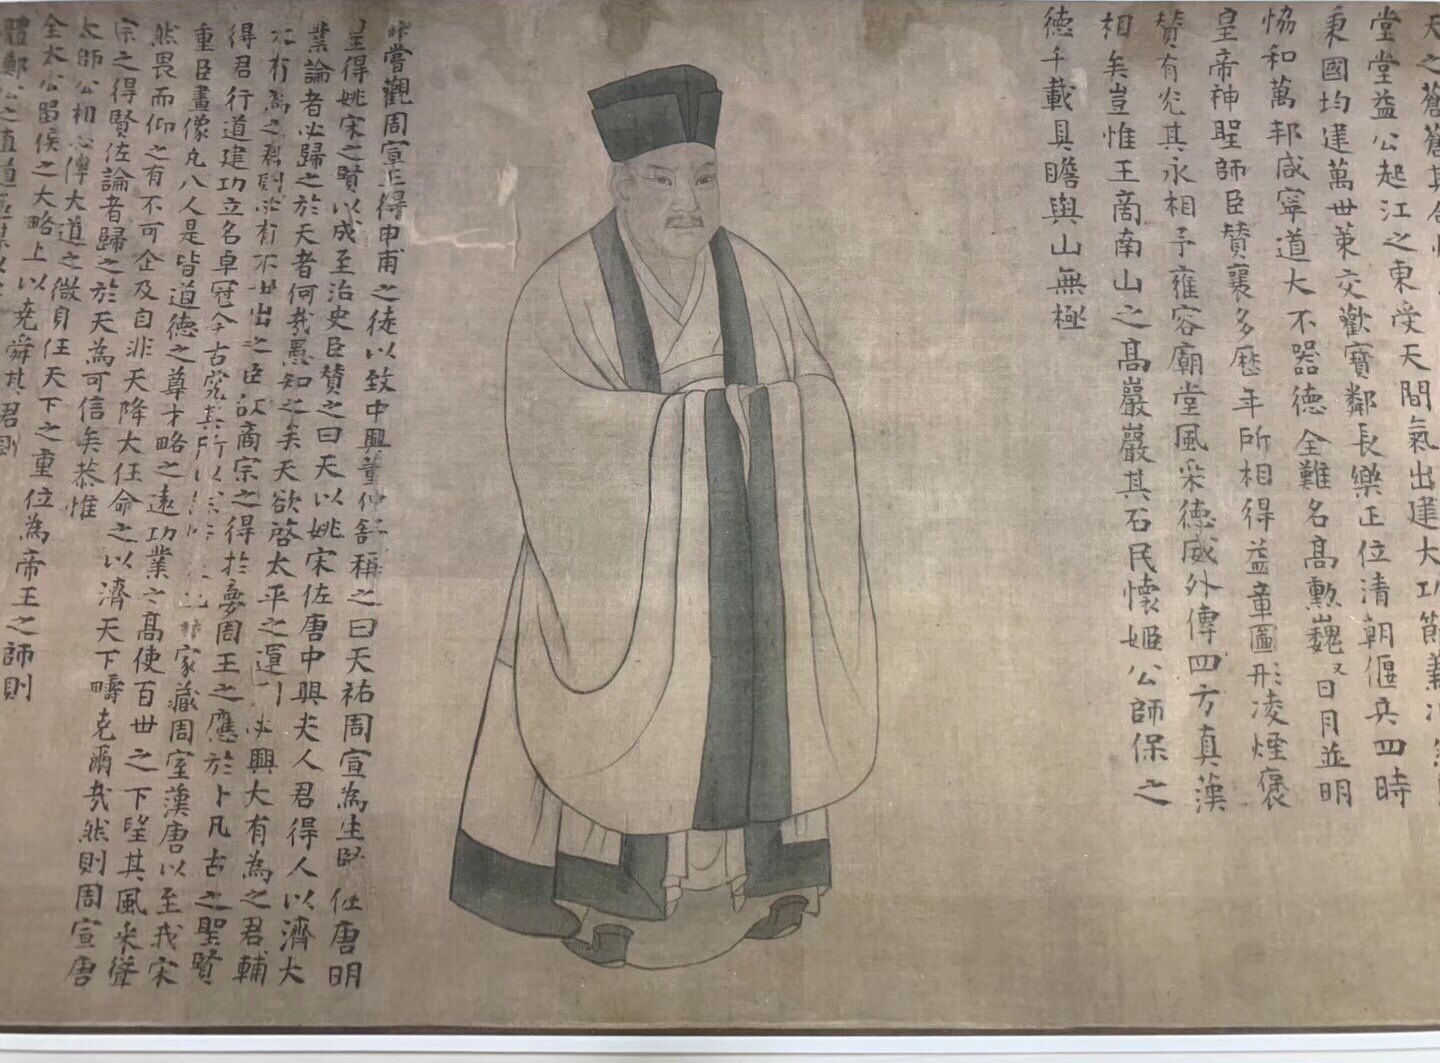 天之蒼蒼其
堂堂益公起江之東受天間氣出建大功節義
秉國均建萬世策交歡寶鄰長樂正位清朝偃兵四時
協和萬邦咸寧道大不器德全難名高勳巍又日月並明
皇帝神聖師臣贊襄多歷年所相得益章圖形凌煙褒
贊有光其永相予雍容廟堂風采德威外傳四方真漢
相矣豈惟王商南山之高巖巖其石民懷姬公師保之
德千載具瞻與山無極
昨嘗觀周宣王得申甫之徒以致中興董仲舒稱之曰天祐周宣為生賢佐唐明
皇得姚宋之賢以成至治史臣贊之曰天以姚宋佐唐中興夫人君得人以濟大
業論者必歸之於天者何哉愚知之矣天欲啓太平之運則必興大有為之君輔
大有為之君則必有不世出之臣故商宗之得於夢周王之應於卜凡古之聖賢
得君行道建功立名卓冠今古究其所以昨家藏周室漢唐以至我宋
重臣畫像凡八人是皆道德之尊才略之遠功業之高使百世之下望其風采聳
然畏而仰之有不可企及自非天降大任命之以濟天下疇克爾哉然則周宣唐
宗之得賢佐論者歸之於天為可信矣恭惟
太師公相心傳大道之微身任天下之重位為帝王之師則
全太公留侯之大略上以堯舜其君則
體鄭公之直道